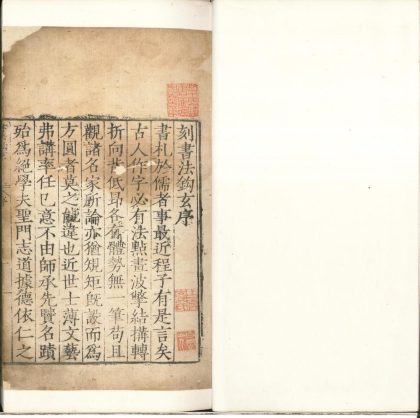 刻書法鈎玄序
書札於儒者事最近程子有是言矣
古人作字必有法點畫波撆結搆轉
折向背低昂各有體勢無一筆苟且
觀諸名家所論亦猶規矩旣設而爲
方圓者莫之能違也近世士薄文藝
弗講率任已意不由師承先賢名蹟
殆爲絕學夫聖門志道據德依仁之